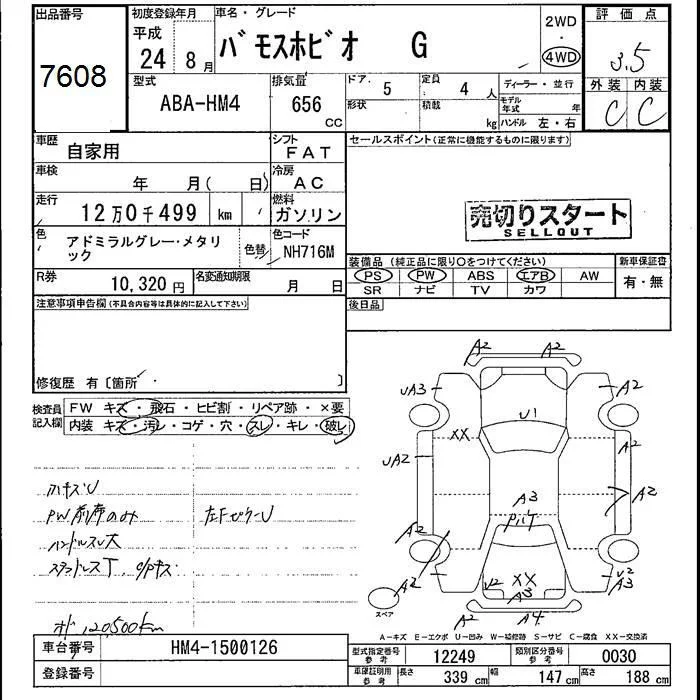 出品番号
7608
初度登録年月
平成
24年 8月
車名・グレード
バモスホビオ G
2WD
4WD
評価点
3.5
外装 内装
C C
型式
ABA-HM4
排気量
656 CC
ドア. 5
形状
定員 4 人
積載 kg
ディーラー・並行
モデル年式 年
ハンドル 左・右
車歴
自家用
シフト
FAT
セールスポイント(正常に機能するものに限ります)
車検
年 月( 日)
冷房
AC
走行
12万0千499 km
燃料
ガソリン
売切りスタート
SELLOUT
色
アドミラルグレー・メタリ
ック
色替
色コード
NH716M
装備品 (純正品に限り○をつけてください)
新車保証書
PS PW ABS エアB AW
有・無
SR ナビ TV カワ
R券
10,320 円
名変通知期限
月 日
後日品
注意事項申告欄(不具合内容等は具体的に記入して下さい)
修復歴 有〔箇所 〕
検査員
記入欄
FW キズ・飛石・ヒビ割・リペア跡・×要
内装 キズ・汚レ・コゲ・穴・スレ・キレ・破レ
ハナキズU
PW前席のみ
左Fピラ-U
ハンドルスレ大
120,500km
A2 A2
UA3 A2
U1
XX A2
UA2
A3 A2
A2
A2 U2 XX U2
A3 A3
スペア
A2 A4
A-キズ E-エクボ U-凹み W-補修跡 S-サビ C-腐食 XX-交換済
車台番号
HM4-1500126
登録番号
型式指定番号
参考
12249
類別区分番号
参考
0030
車庫証明用
参考
長さ 339 cm
幅 147 cm
高さ 188 cm